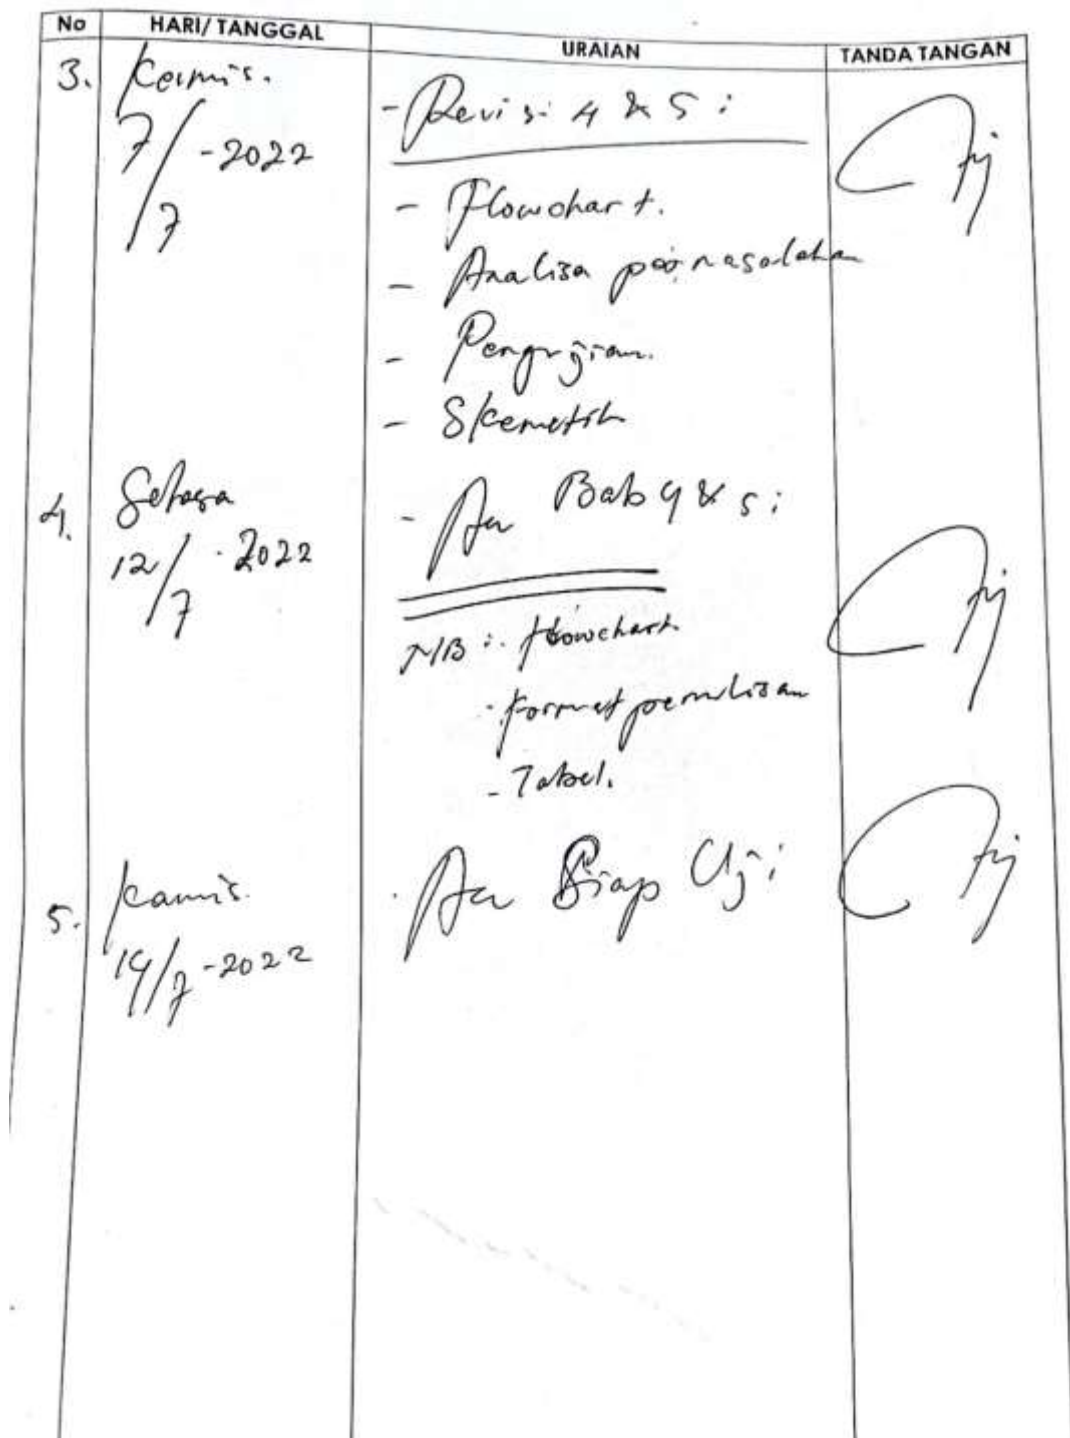 No HARI/ TANGGAL URAIAN TANDA TANGAN
3. Kamis.
7/7-2022
- Revisi 4 & 5 :
- Flowchart.
- Analisa permasalahan
- Pengujian.
- Skematik
4. Selasa
12/7-2022
- Acc Bab 4 & 5 :
NB : - flowchart
- format penulisan
- Tabel.
5. Kamis.
14/7-2022
- Acc Siap Uji :